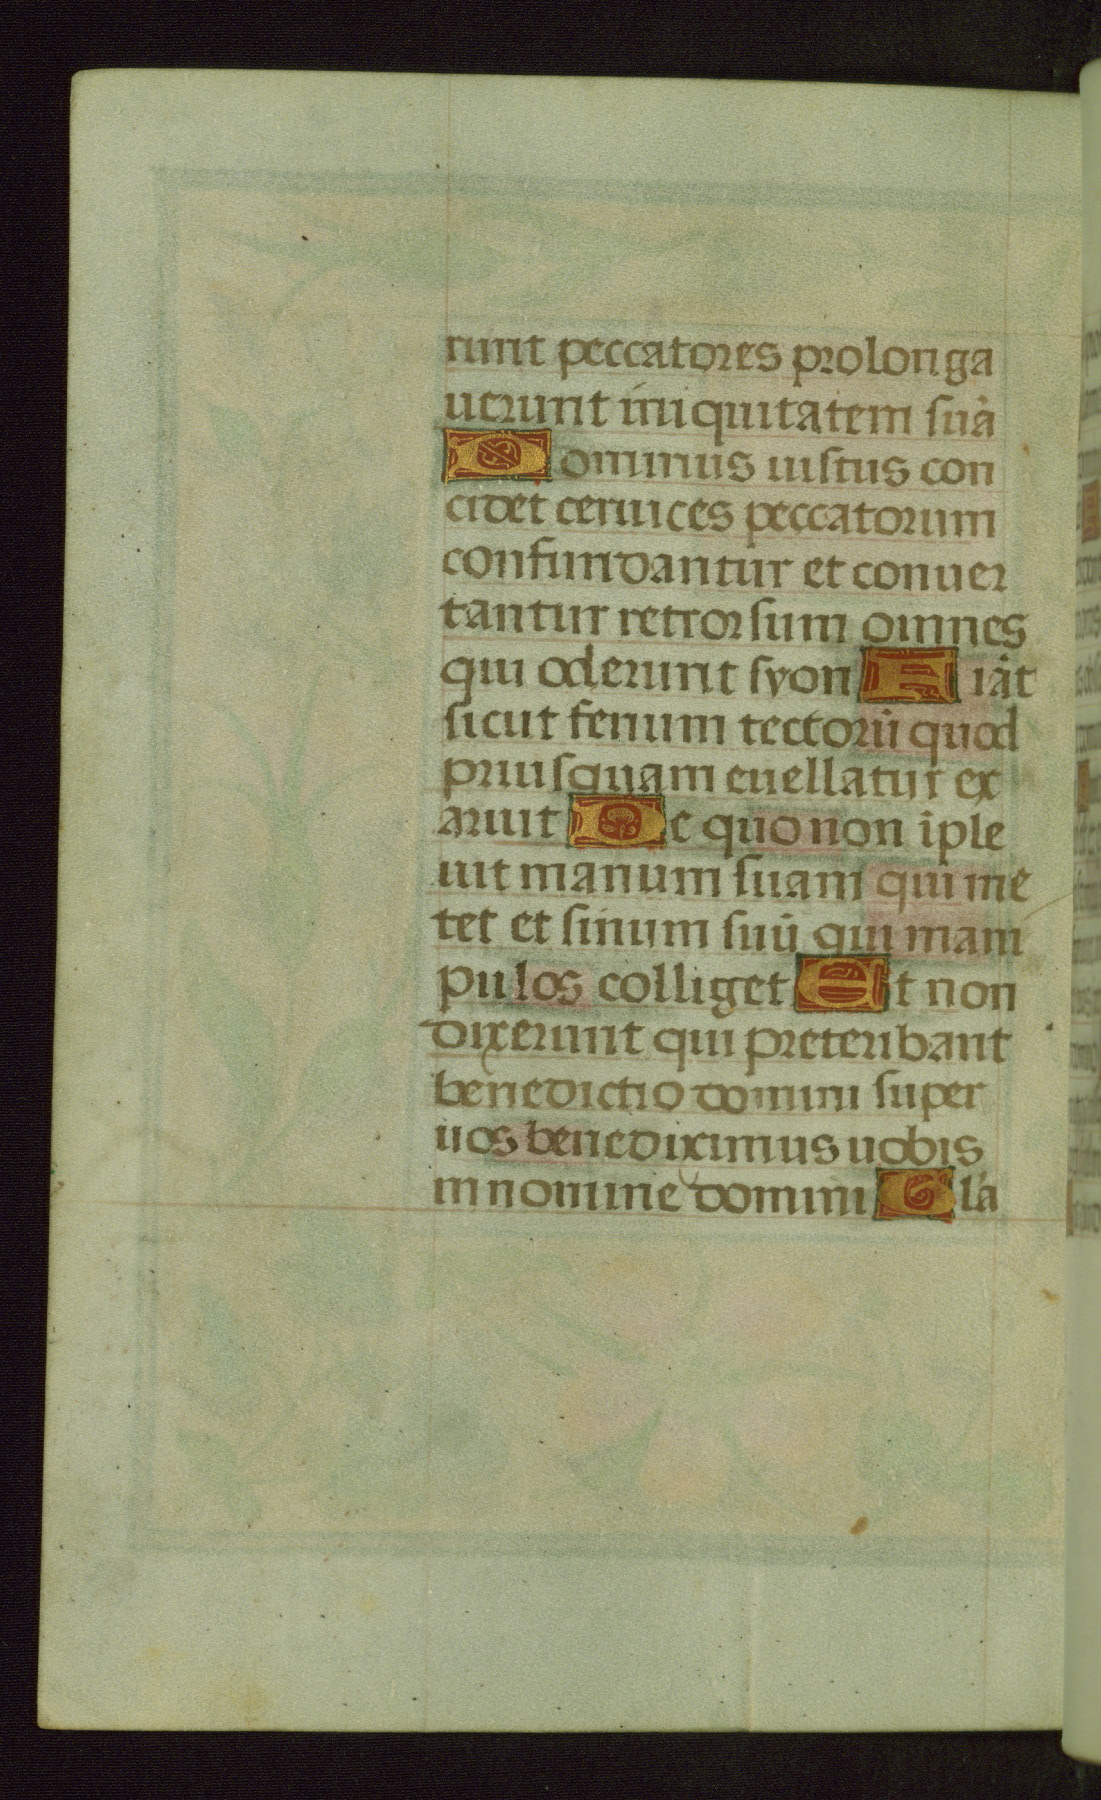 runt peccatores prolonga
uerunt iniquitatem suā
Dominus iustus con
cidet ceruices peccatorum
confundantur et conuer
tantur retrorsum omnes
qui oderunt syon Fiāt
sicut fenum tectorū quod
priusquam euellatur ex
aruit De quo non īple
uit manum suam qui me
tet et sinum suū qui mani
pulos colliget Et non
dixerunt qui preteribant
benedictio domini super
uos benediximus uobis
in nomine domini Gľa